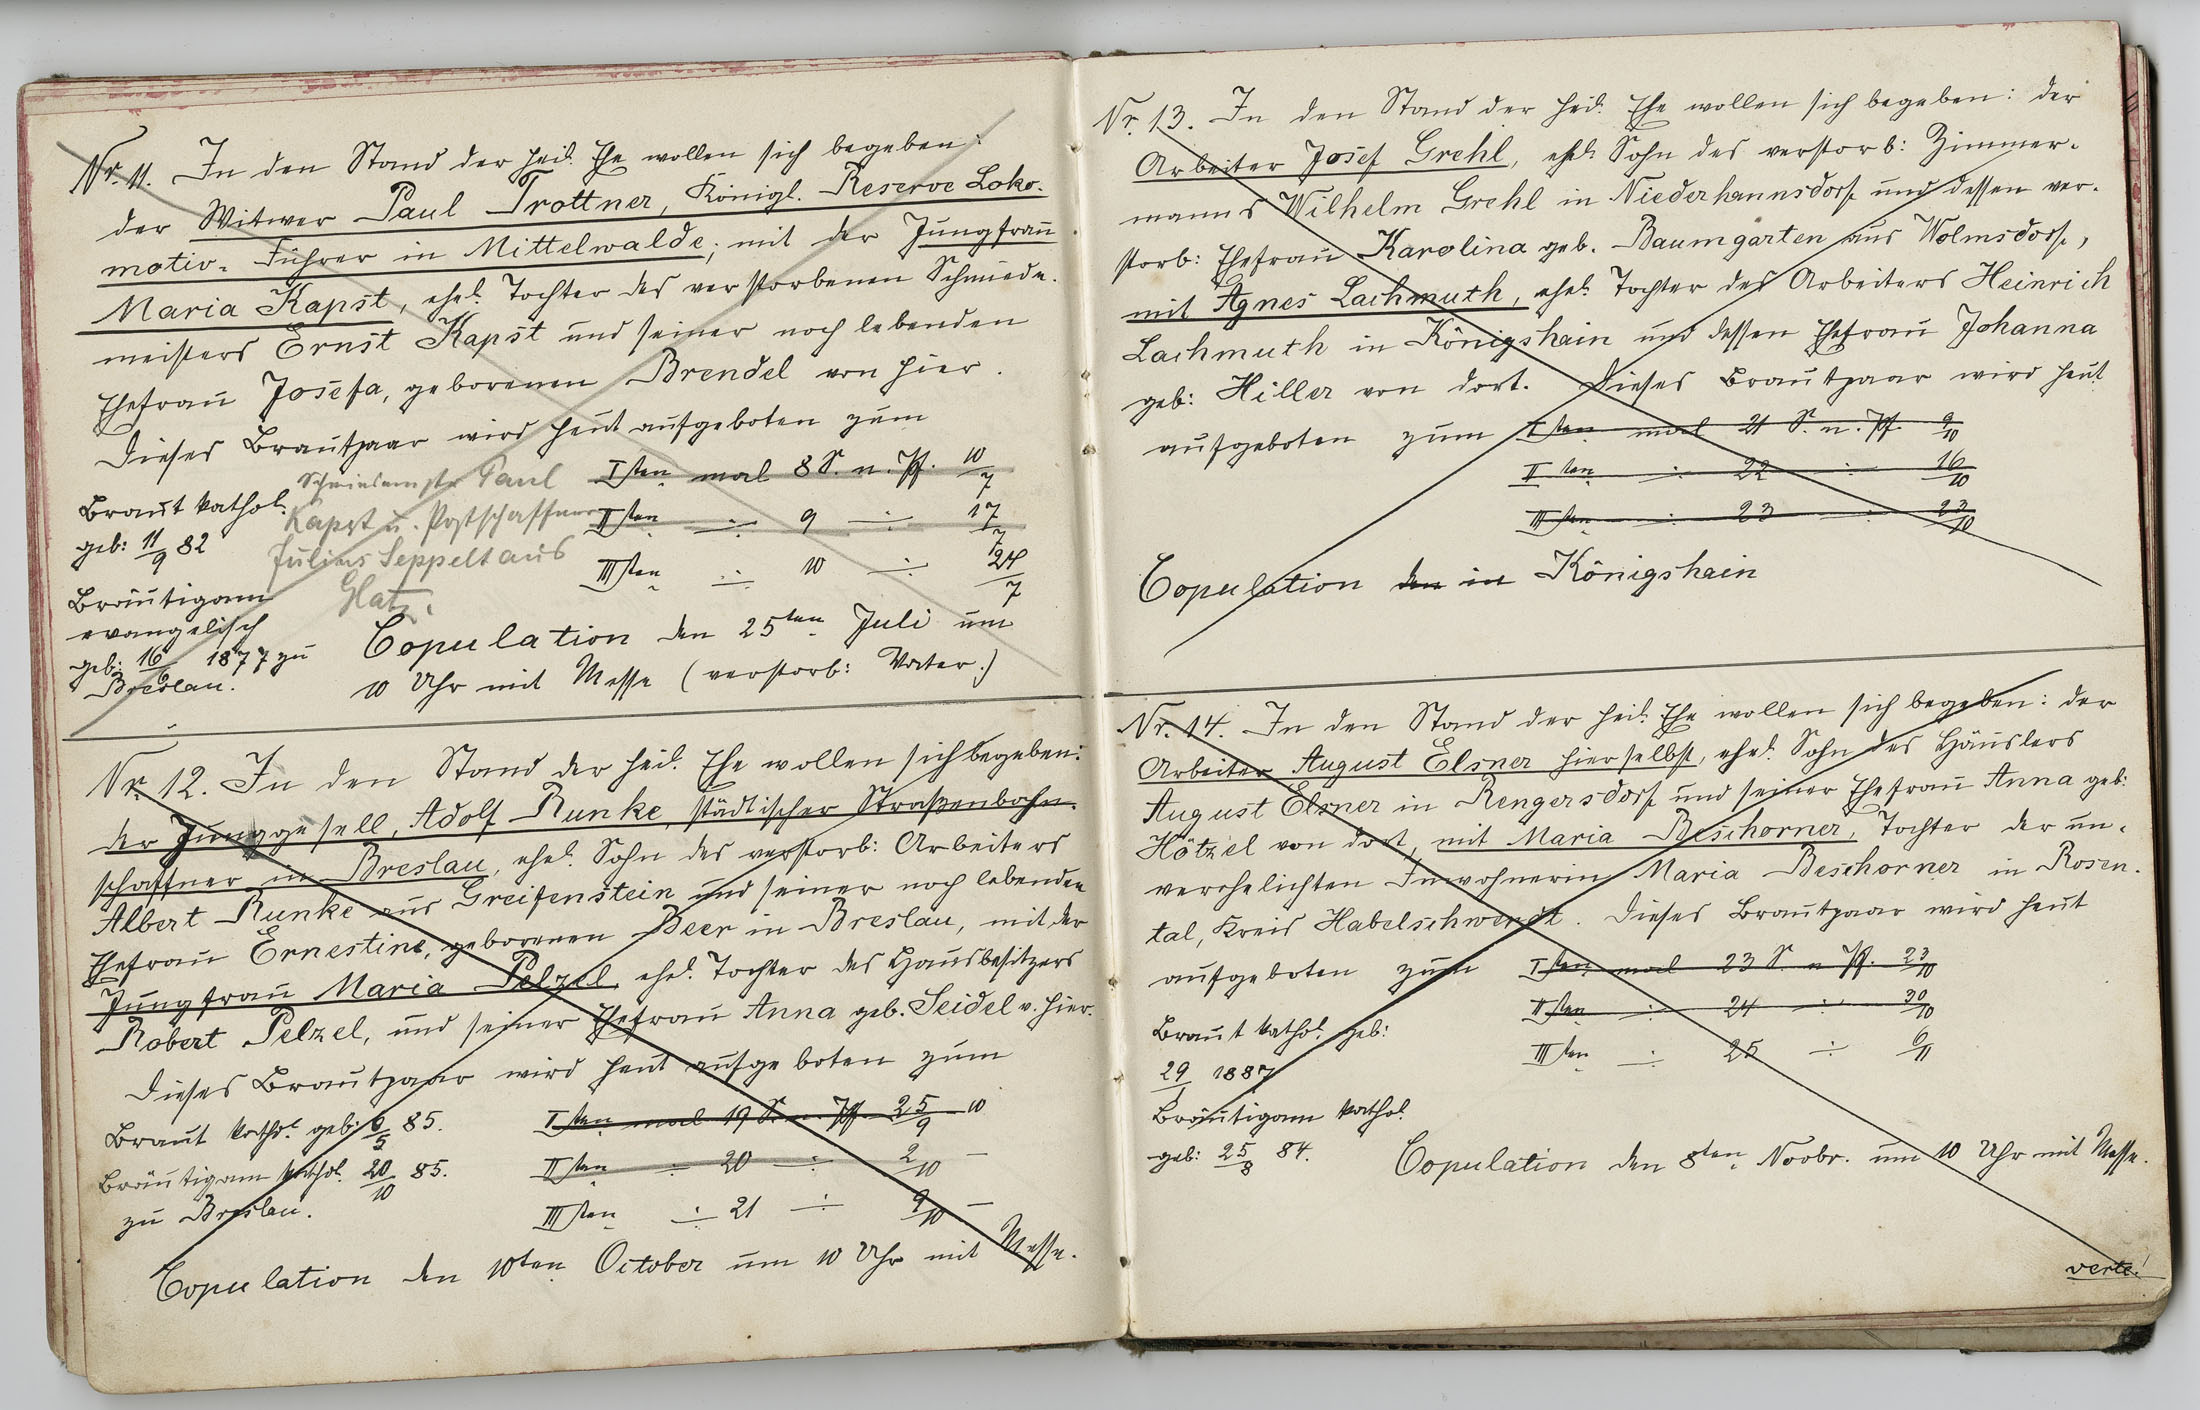 Nr. 11. In den Stand der heil. Ehe wollen sich begeben:
der Witwer Paul Trottner, Königl. Reserve Loko-
motiv-Führer in Mittelwalde, mit der Jungfrau
Maria Kapst, ehel. Tochter des verstorbenen Schmiede-
meisters Ernst Kapst und seiner noch lebenden
Ehefrau Josefa, geborenen Brendel von hier.
Dieses Brautpaar wird heut aufgeboten zum
Isten mal 8 S. n. Pf. 10/7
IIten ÷ 9 ÷ 17/7
IIIten ÷ 10 ÷ 24/7
Schmiedemstr. Paul
Kapst u. Postschaffner
Julius Seppelt aus
Glatz.
Braut kathol.
geb: 11/9 82
Bräutigam
evangelisch
geb: 16/6 1877 zu
Breslau.
Copulation den 25ten Juli um
10 Uhr mit Messe (verstorb: Vater.)
Nr. 12. In den Stand der heil. Ehe wollen sich begeben:
der Junggesell, Adolf Runke, städtischer Straßenbahn-
schaffner in Breslau, ehel. Sohn des verstorb: Arbeiters
Albert Runke aus Greifenstein und seiner noch lebenden
Ehefrau Ernestine, geborenen Beer in Breslau, mit der
Jungfrau Maria Pelzel, ehel. Tochter des Hausbesitzers
Robert Pelzel, und seiner Ehefrau Anna geb. Seidel v. hier.
Dieses Brautpaar wird heut aufgeboten zum
Isten mal 19 S. n. Pf. 25/9 10
IIten ÷ 20 ÷ 2/10 —
IIIten ÷ 21 ÷ 9/10 —
Braut kathol. geb: 6/5 85.
Bräutigam kathol. 20/10 85.
zu Breslau.
Copulation den 10ten October um 10 Uhr mit Messe.
Nr. 13. In den Stand der heil. Ehe wollen sich begeben: der
Arbeiter Josef Grehl, ehel. Sohn des verstorb: Zimmer-
manns Wilhelm Grehl in Niederhannsdorf und dessen ver-
storb: Ehefrau Karolina geb. Baumgarten aus Wolmsdorf,
mit Agnes Lachmuth, ehel. Tochter des Arbeiters Heinrich
Lachmuth in Königshain und dessen Ehefrau Johanna
geb: Hiller von dort. Dieses Brautpaar wird heut
aufgeboten zum Isten mal 21 S. n. Pf. 9/10
IIten ÷ 22 ÷ 16/10
IIIten ÷ 23 ÷ 23/10
Copulation den in Königshain
Nr. 14. In den Stand der heil. Ehe wollen sich begeben: der
Arbeiter August Elsner hierselbst, ehel. Sohn des Häuslers
August Elsner in Rengersdorf und seiner Ehefrau Anna geb:
Hötzel von dort, mit Maria Beschorner, Tochter der un-
verehelichten Inwohnerin Maria Beschorner in Rosen-
tal, Kreis Habelschwerdt. Dieses Brautpaar wird heut
aufgeboten zum Isten mal 23 S. n. Pf. 23/10
IIten ÷ 24 ÷ 30/10
IIIten ÷ 25 ÷ 6/11
Braut kathol. geb:
29/1 1887
Bräutigam kathol.
geb: 25/8 84.
Copulation den 8ten Novbr. um 10 Uhr mit Messe.
verte!